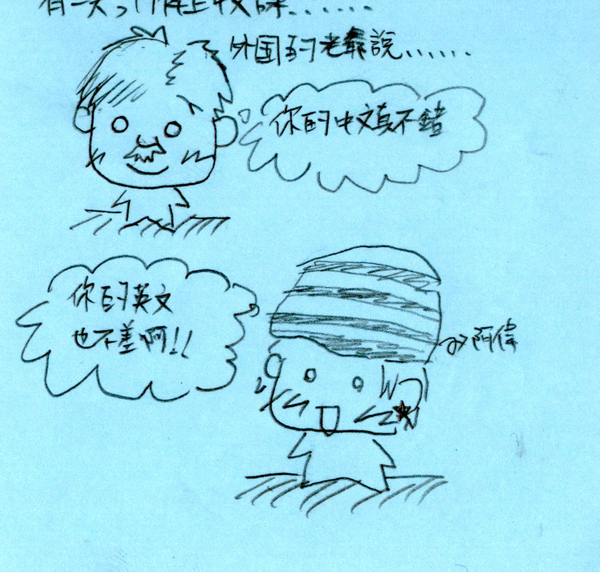 有一天
外国的老說......
你的中文真不錯
你的英文
也不差啊!!
阿偉